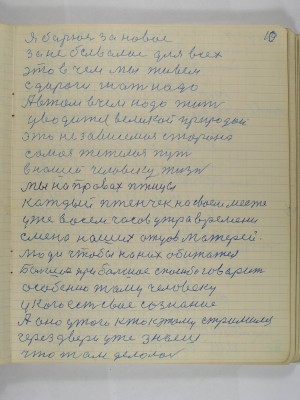 10
Я борюсь за новое
за не бывалое для всех
это в чем мы живем
с дороги надо
А в том в чем надо жить
уводите великой природой
это независимая сторона
самая тяжелая путь
в нашей человеку жизн
мы на правах птицы
каждый птенчек на своем месте
уже восем часов утра времени
смена наших отцов матерей.
Люди чтобы на них обижатся
Большое при большое спасибо говорит
особенно тому человеку
у кого ест свае сознание
А оно у того кто к этому стремился
через двери уже знаеш
что там делолос